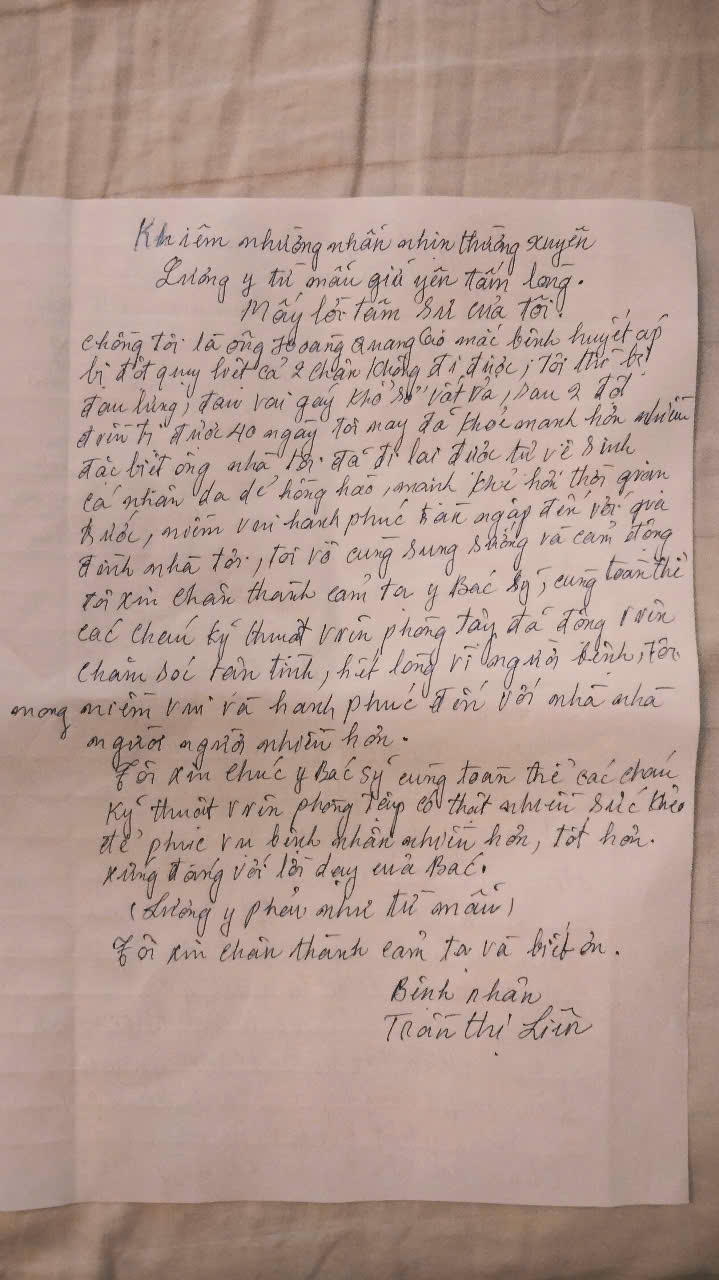 Khiêm nhường nhẫn nhịn thường xuyên
Lương y từ mẫu giữ yên tấm lòng.
Mấy lời tâm sự của tôi.
Chồng tôi là ông Hoàng Quang mắc bệnh huyết áp
bị đột quỵ liệt cả 2 chân không đi được, tôi thì bị
đau lưng, đau vai gáy khổ sở vất vả, sau 2 đợt
điều trị được 40 ngày tôi nay đã khoẻ mạnh hơn nhiều
đặc biệt ông nhà tôi đã đi lại được tự vệ sinh
cá nhân da dẻ hồng hào, mạnh khoẻ hơn thời gian
trước, niềm vui hạnh phúc tràn ngập đến với gia
đình nhà tôi, tôi vô cùng sung sướng và cảm động
tôi xin chân thành cảm tạ y Bác Sỹ, cùng toàn thể
các cháu kỹ thuật viên phòng tây đã động viên
chăm sóc tận tình, hết lòng vì người bệnh, tôi
mong niềm vui và hạnh phúc đến với nhà nhà
người người nhiều hơn.
Tôi xin chúc y Bác Sỹ cùng toàn thể các cháu
kỹ thuật viên phòng có thật nhiều sức khỏe
để phục vụ bệnh nhân nhiều hơn, tốt hơn.
xứng đáng với lời dạy của Bác.
(Lương y phải như từ mẫu)
Tôi xin chân thành cảm tạ và biết ơn.
Bệnh nhân
Trần thị Liên